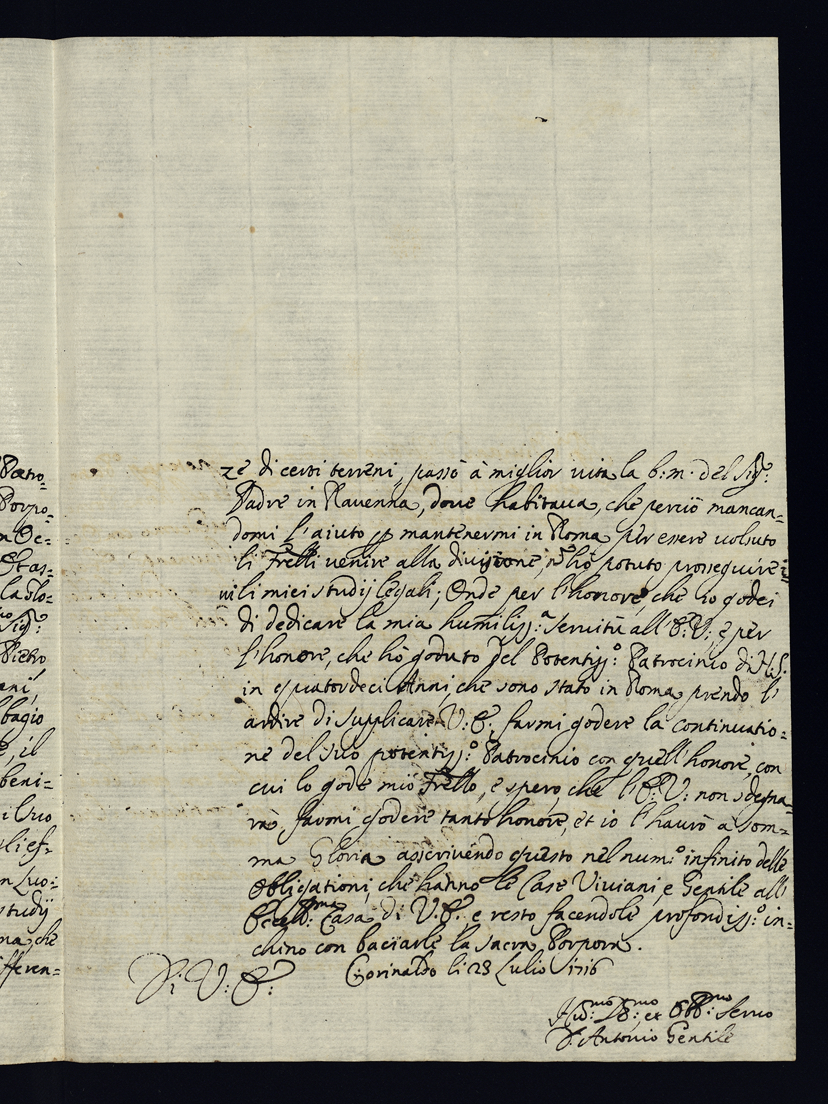 Patro=
Porpo=
la Glo=
Sig:r
Pietro
ani,
bagio
e, il
beni=
il suo
gli ef=
n Luo:
studij
ma, che
ifferen=
ze di certi terreni, passò à miglior vita la b:m: del Sig:r
Padre in Ravenna, dove habitava, che perciò mancan=
domi l'aiuto p mantenermi in Roma per essere voluto
li Frelli venire alla divisione, nõ hò potuto prosseguire i
vili miei studij legali; Onde per l'honore, che io godei
di dedicare la mia humiliss:a servitù all'E:V:, e per
l'honore, che hò goduto del Potentiss:o Patrocinio di
in quatordeci Anni che sono stato in Roma prendo l'
ardire di supplicare V:E:, farmi godere la continuatio=
ne del suo potentiss:o Patrocinio con quell'honore, con
cui lo gode mio Frello, e spero, che l'E:V: non sdegna=
rà, farmi godere tanto honore, et io l'haurò a som=
ma Gloria ascrivendo questo nel num:o infinito delle
Obligationi, che hanno le Case Viviani, e Gentile all'
Eccell:ma Casa di V:E: e resto facendole profondiss:o in=
chino con baciarle la sacra Porpora.
Di V: E: Corinaldo li 28 Lulio 1716
Hu:mo D:mo et Obb:mo Servo
D. Antonio Gentile